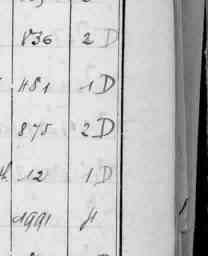 836 2 D
481 1 D
875 2 D
12 1 D
1991